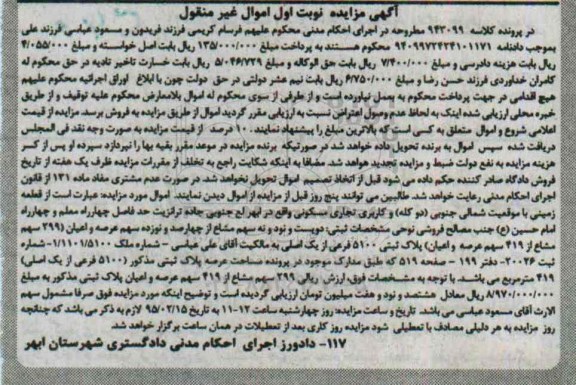 آگهی مزایده نوبت اول اموال غیر منقول
در پرونده کلاسه ۹۴۳۰۹۹ مطروحه در اجرای احکام مدنی محکوم علیهم فرسام کریمی فرزند فریدون و مسعود عباسی فرزند علی
بموجب دادنامه ۹۴۰۹۹۷۲۴۲۴۱۰۱۱۷۱ محکوم هستند به پرداخت مبلغ ۱۳۵/۰۰۰/۰۰۰ ریال بابت اصل خواسته و مبلغ ۴/۰۵۵/۰۰۰
ریال بابت هزینه دادرسی و مبلغ ۷/۴۰۰/۰۰۰ ریال بابت حق الوکاله و مبلغ ۵/۰۴۶/۷۲۹ ریال بابت خسارت تاخیر تادیه در حق محکوم له
کامران خداوردی فرزند حسن رضا و مبلغ ۶/۷۵۰/۰۰۰ ریال بابت نیم عشر دولتی در حق دولت چون با ابلاغ اوراق اجرائیه محکوم علیهم
هیچ اقدامی در جهت پرداخت محکوم به بعمل نیاورده است و از طرفی از سوی محکوم له اموال بلامعارض محکوم علیه توقیف و از طریق
خبره محلی ارزیابی شده اینک به لحاظ عدم وصول اعتراض نسبت به ارزیابی مقرر گردید اموال از طریق مزایده به فروش برسد. مزایده از قیمت
اعلامی شروع و اموال متعلق به کسی است که بالاترین مبلغ را پیشنهاد نمایند. ۱۰ درصد از قیمت مزایده به صورت وجه نقد فی المجلس
دریافت شده سپس اموال به برنده تحویل داده خواهد شد. در صورتیکه برنده مزایده در موعد مقرر بقیه بها را نپردازد سپرده او پس از کسر
هزینه مزایده به نفع دولت ضبط و مزایده تجدید خواهد شد. مضافا به اینکه شکایت راجع به تخلف از مقررات مزایده ظرف یک هفته از تاریخ
فروش دادگاه صادر کننده حکم داده می شود قبل از اتخاذ تصمیم اموال تحویل نخواهد شد. در صورت عدم مشتری مفاد ماده ۱۳۱ از قانون
اجرای احکام مدنی رعایت خواهد شد. طالبین می توانند پنج روز قبل از مزایده از اموال دیدن نمایند. اموال مورد مزایده: عبارت است از قطعه
زمینی با موقعیت شمالی جنوبی (دو کله) و کاربری تجاری مسکونی واقع در ابهر لج جنوبی جاده ترانزیت حد فاصل چهارراه معلم و چهارراه
امام حسین (ع) جنب مصالح فروشی نوحی مشخصات ثبتی: دویست و نود و نه سهم مشاع از چهارصد و نوزده سهم عرصه و اعیان (۲۹۹ سهم
مشاع از ۴۱۹ سهم عرصه و اعیان) پلاک ثبتی ۵۱۰۰ فرعی از یک اصلی به مالکیت آقای علی عباسی - شماره ملک ۱/۱۱۰۱/۵۱۰۰- شماره
ثبت ۲۰۰۲۶- دفتر ۱۹۹ - صفحه ۵۱۹ که طبق مدارک موجود در پرونده مساحت عرصه پلاک ثبتی مذکور (۵۱۰۰ فرعی از یک اصلی)
۴۱۹ مترمربع می باشد. با توجه به مشخصات فوق، ارزش ریالی ۲۹۹ سهم مشاع از ۴۱۹ سهم عرصه و اعیان پلاک ثبتی مذکور به مبلغ
۸/۹۷۰/۰۰۰/۰۰۰ ریال معادل هشتصد و نود و هفت میلیون تومان ارزیابی گردیده است و توضیح اینکه مورد مزایده فوق صرفا مشمول سهم
الارث آقای مسعود عباسی می باشد. تاریخ و ساعت مزایده: روز چهارشنبه ساعت ۱۲-۱۱ به تاریخ ۹۵/۰۲/۱۵ لازم به ذکر می باشد که چنانچه
روز مزایده به هر دلیلی مصادف با تعطیلی شود مزایده روز کاری بعد از تعطیلات در همان ساعت برگزار خواهد شد.
۱۱۷- دادورز اجرای احکام مدنی دادگستری شهرستان ابهر